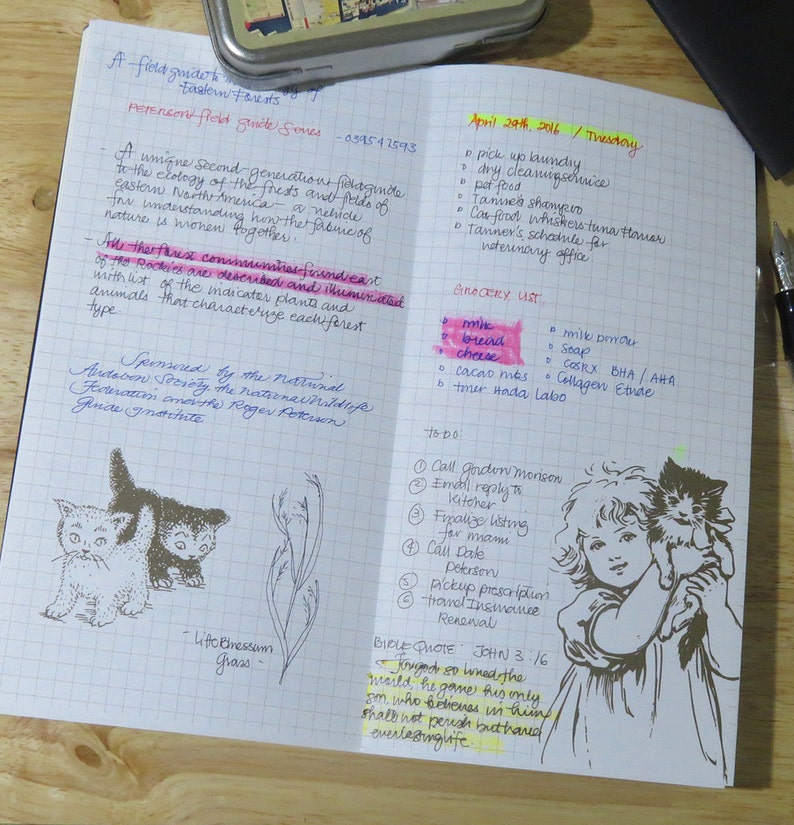 A field guide to the
of
Eastern Forests
PETERSON field guide Series
- 039547593
- A unique second-generation field guide
to the ecology of the forests and fields of
eastern North America - a vehicle
for understanding how the fabric of
nature is woven together.
- All the forest communities found east
of the Rockies are described and illuminated
with list of the indicator plants and
animals that characterize each forest
type
Sponsored by the National
Audobon Society the National Wildlife
Federation and the Roger Peterson
Guide Institute
- Little Blossum
Grass -
April 29th, 2016 / Tuesday
pick up laundry
dry cleaning service
pet food
Tanner's shampoo
Cat food whiskers tuna flavor
Tanner's schedule for
veterinary office
GROCERY LIST
milk
bread
cheese
cacao nibs
toner Hada Labo
milk powder
soap
COSRX BHA / AHA
Collagen Etude
TO DO:
1 Call Gordon Morison
2 Email reply to
Kitcher
3 Finalize listing
for miami
4 Call Dale
Peterson
5 Pickup prescription
6 Travel Insurance
Renewal
BIBLE QUOTE: JOHN 3:16
For god so loved the
world, he gave his only
son, who believes in him
shall not perish but have
everlasting life.